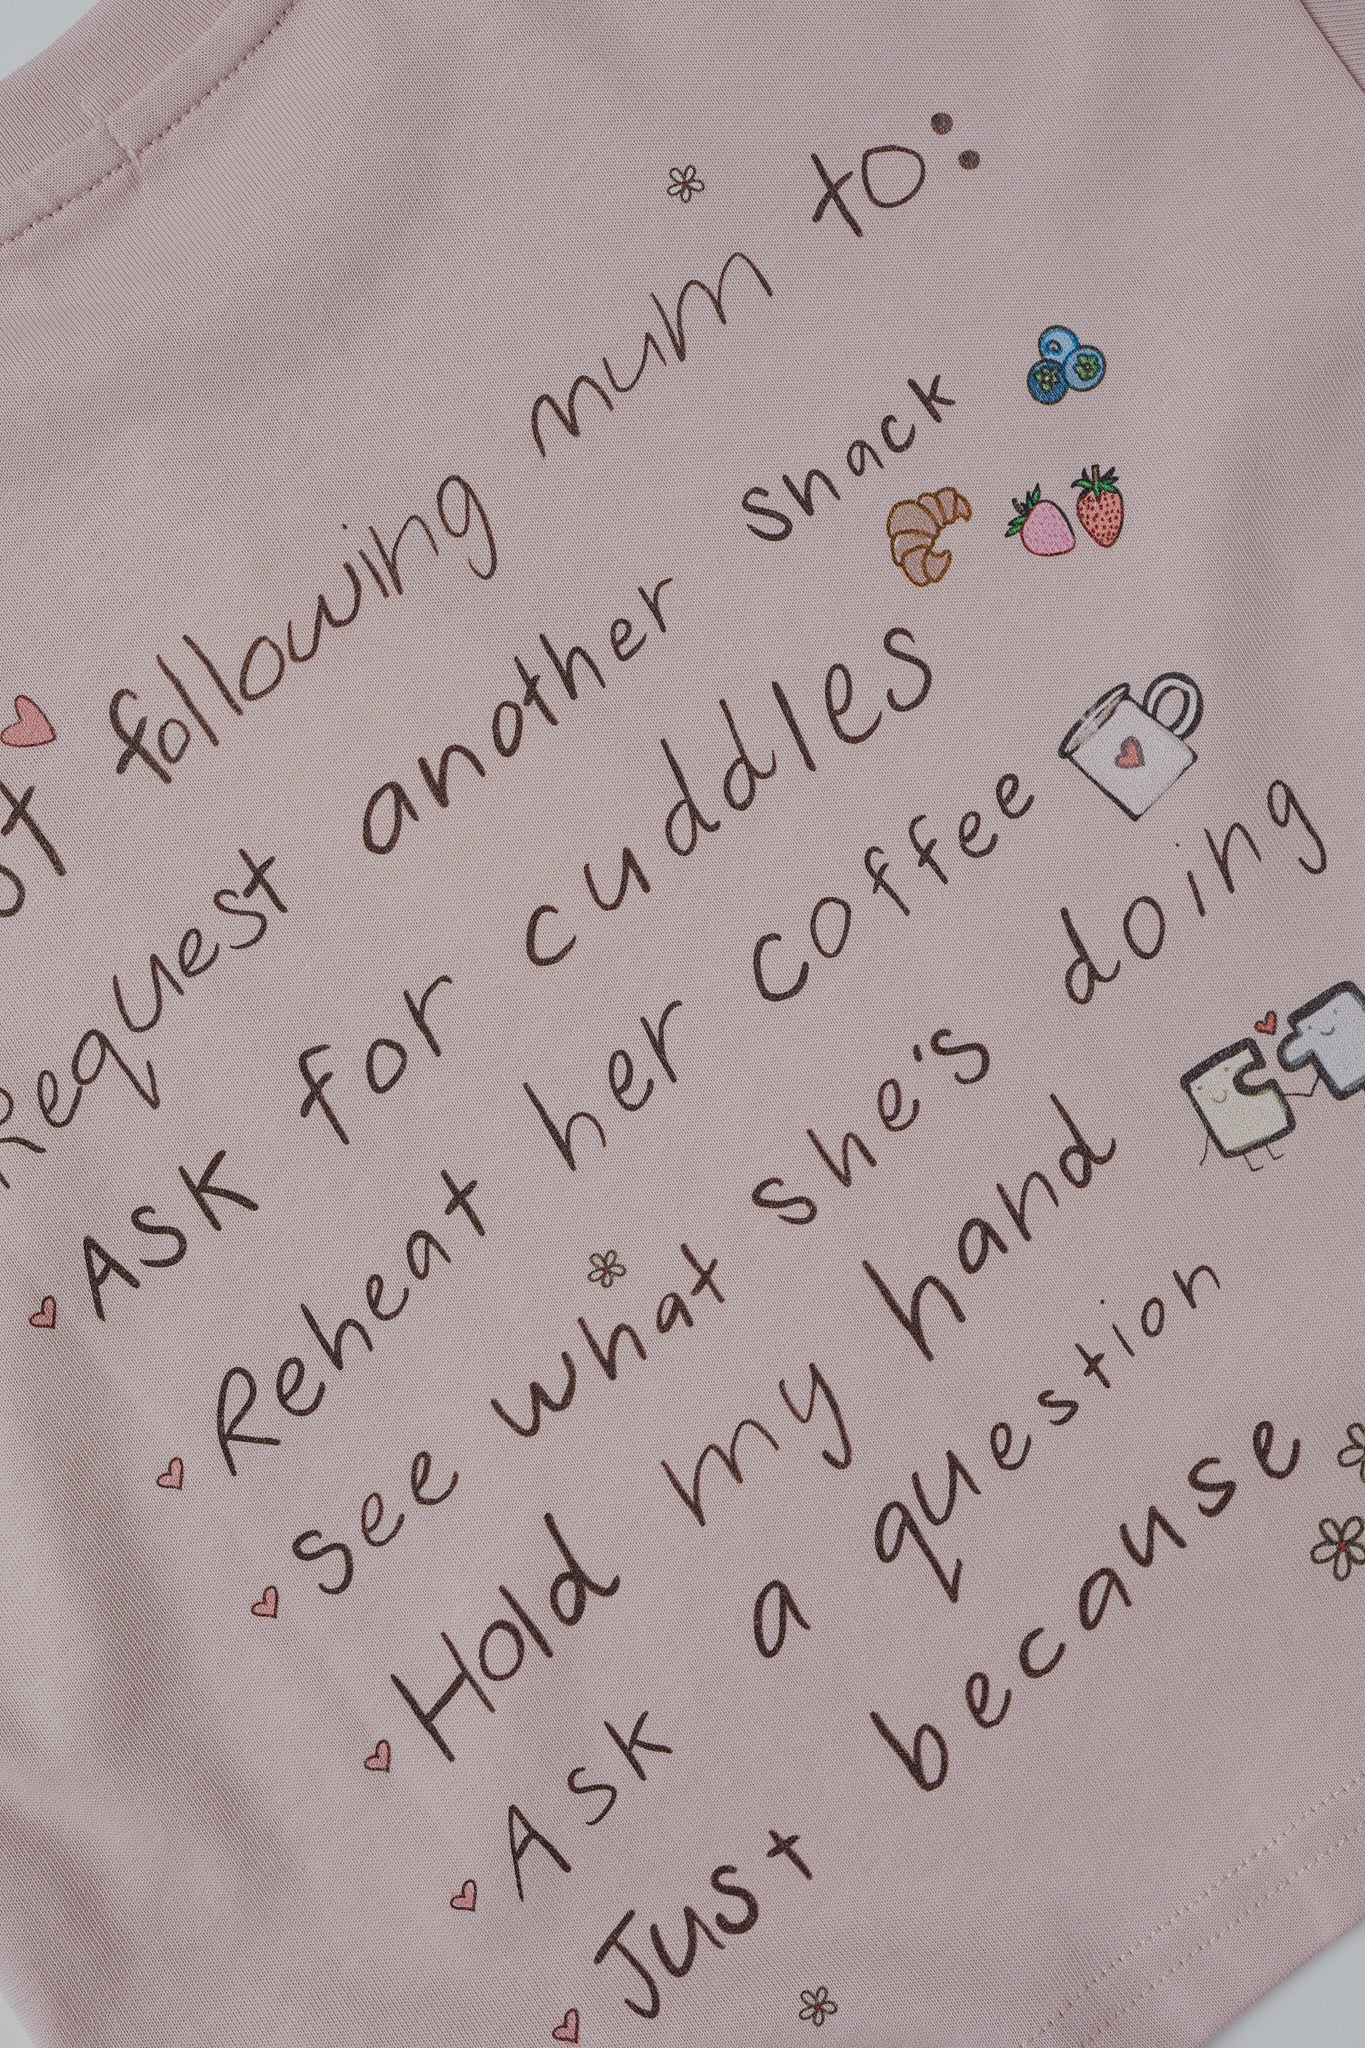 following mum to:
Request another snack
Ask for cuddles
Reheat her coffee
See what she's doing
Hold my hand
Ask a question
Just because